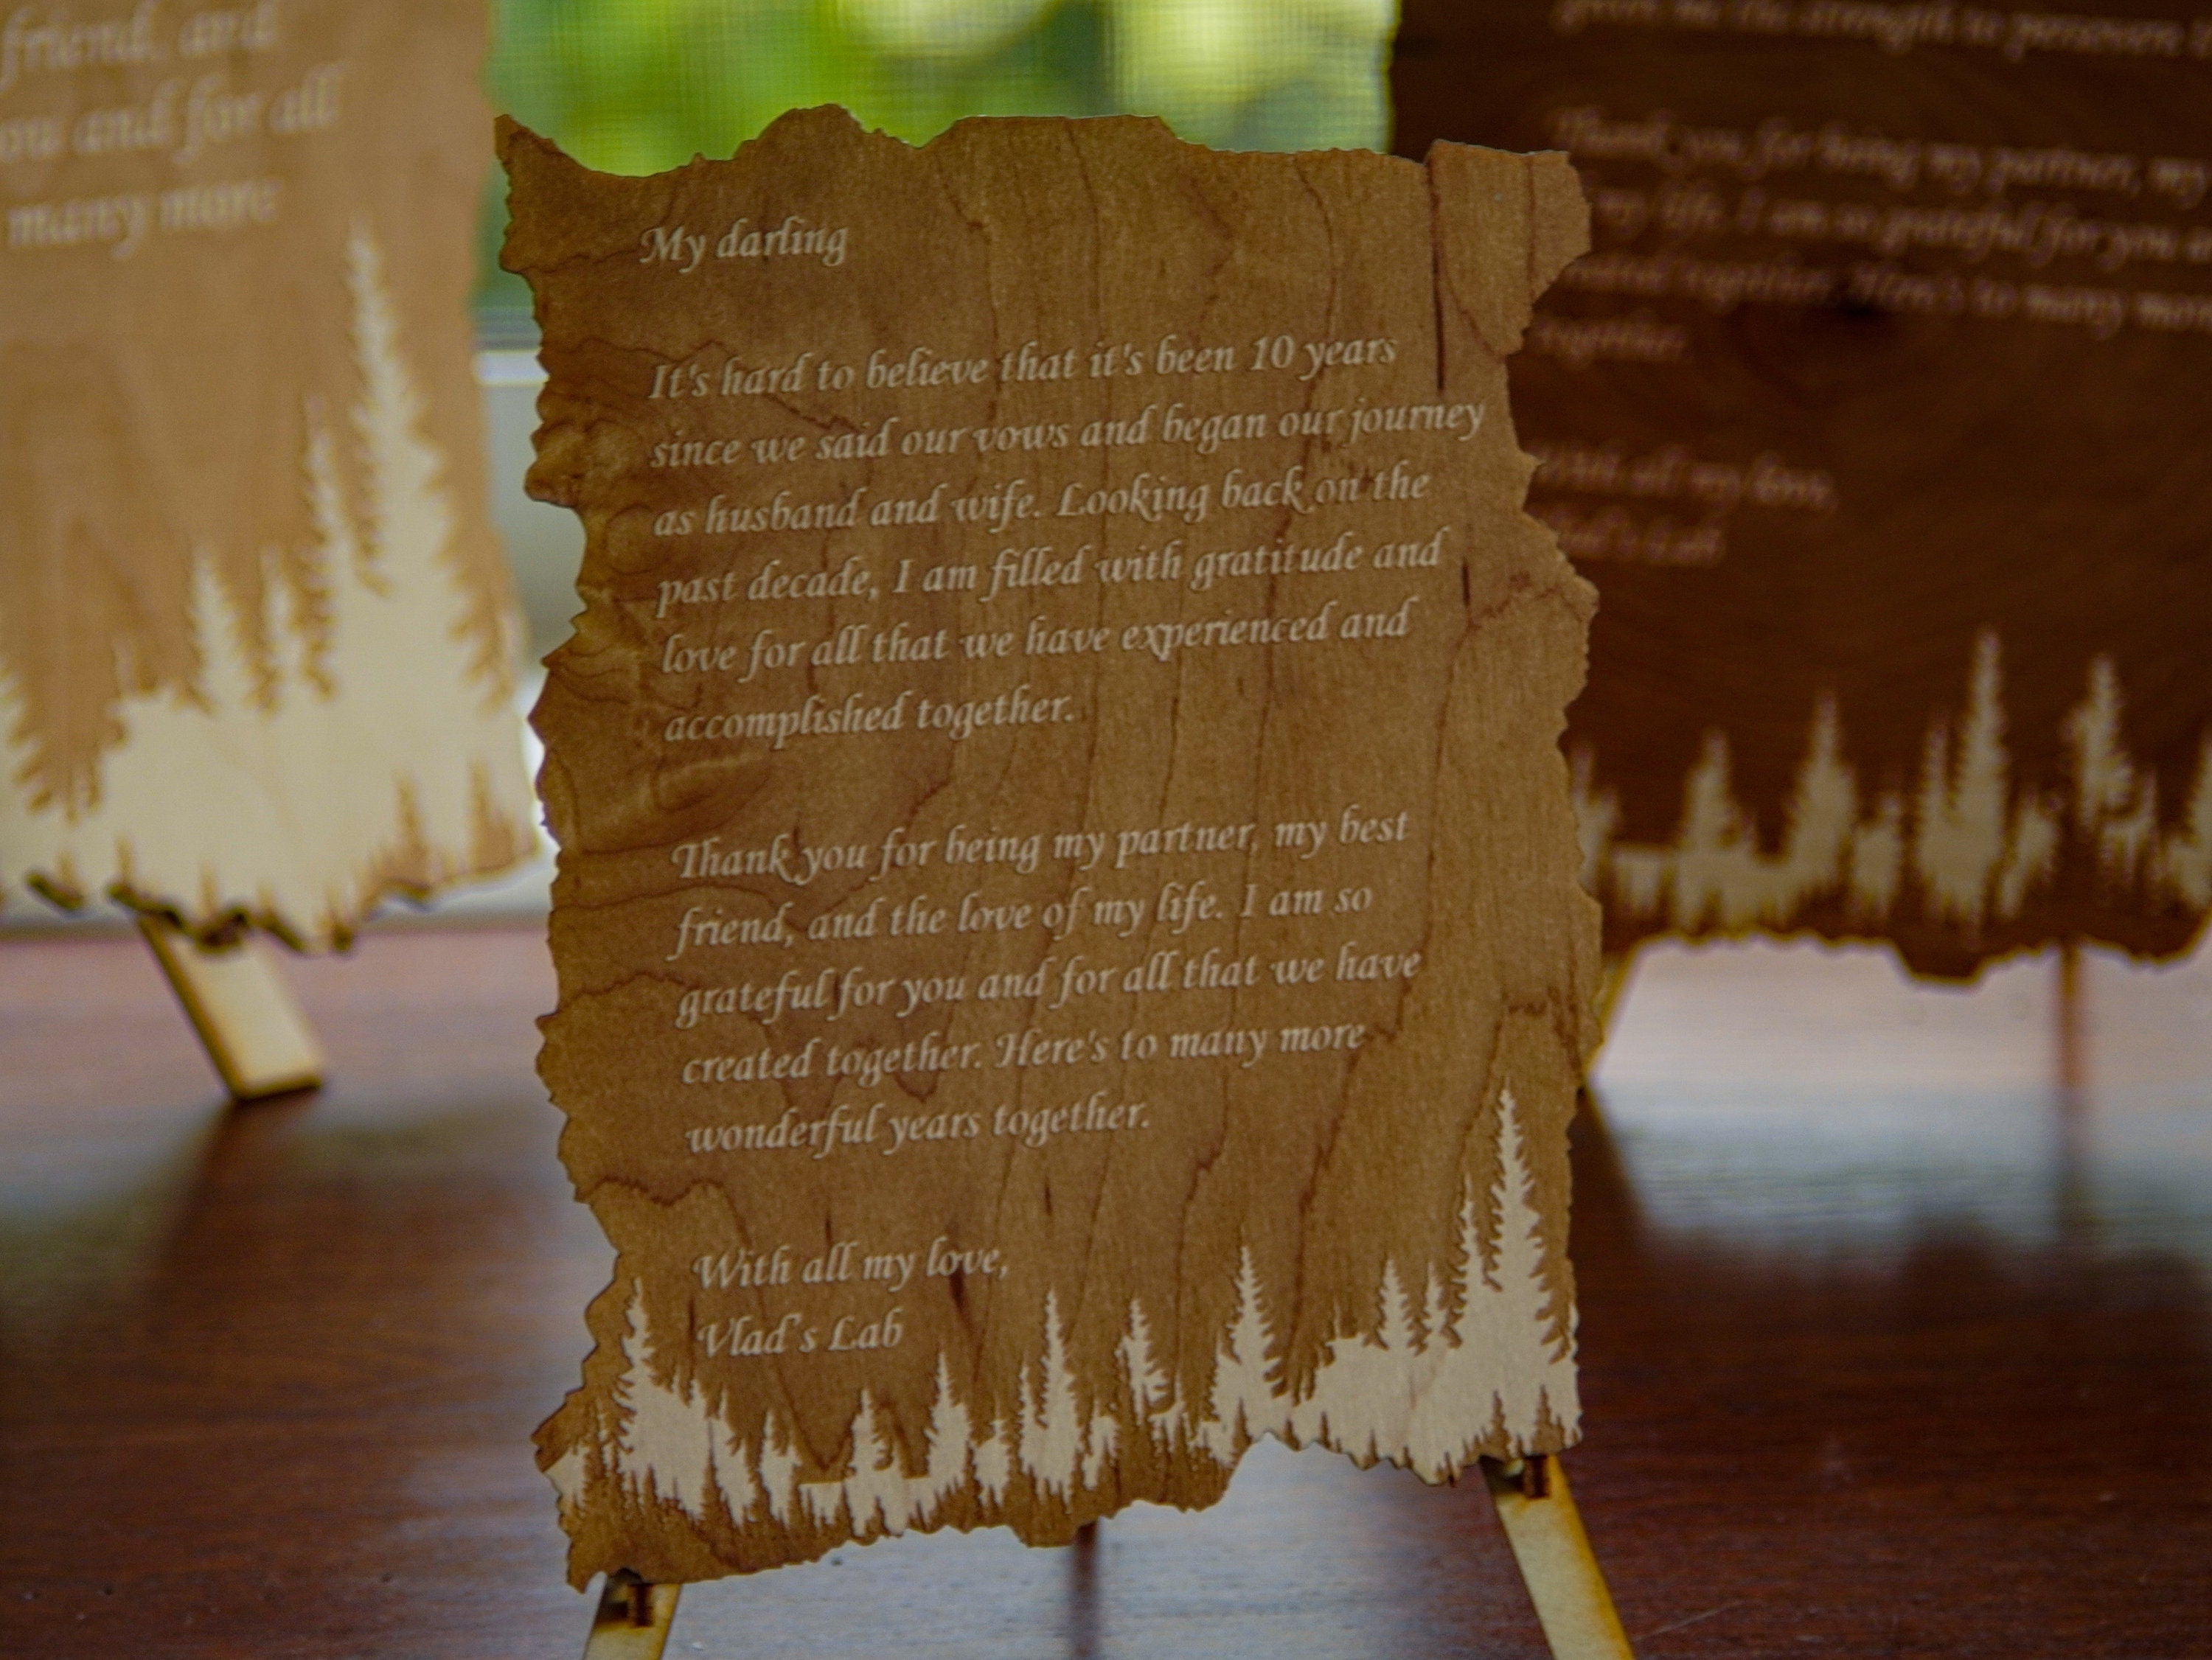 friend, and
ou and for all
many more
My darling
It's hard to believe that it's been 10 years
since we said our vows and began our journey
as husband and wife. Looking back on the
past decade, I am filled with gratitude and
love for all that we have experienced and
accomplished together.
Thank you for being my partner, my best
friend, and the love of my life. I am so
grateful for you and for all that we have
created together. Here's to many more
wonderful years together.
With all my love,
Vlad's Lab
the strength to persevere
Thank you for being my partner, my
my life. I am so grateful for you
together. Here's to many
together.
all my love,
Lab